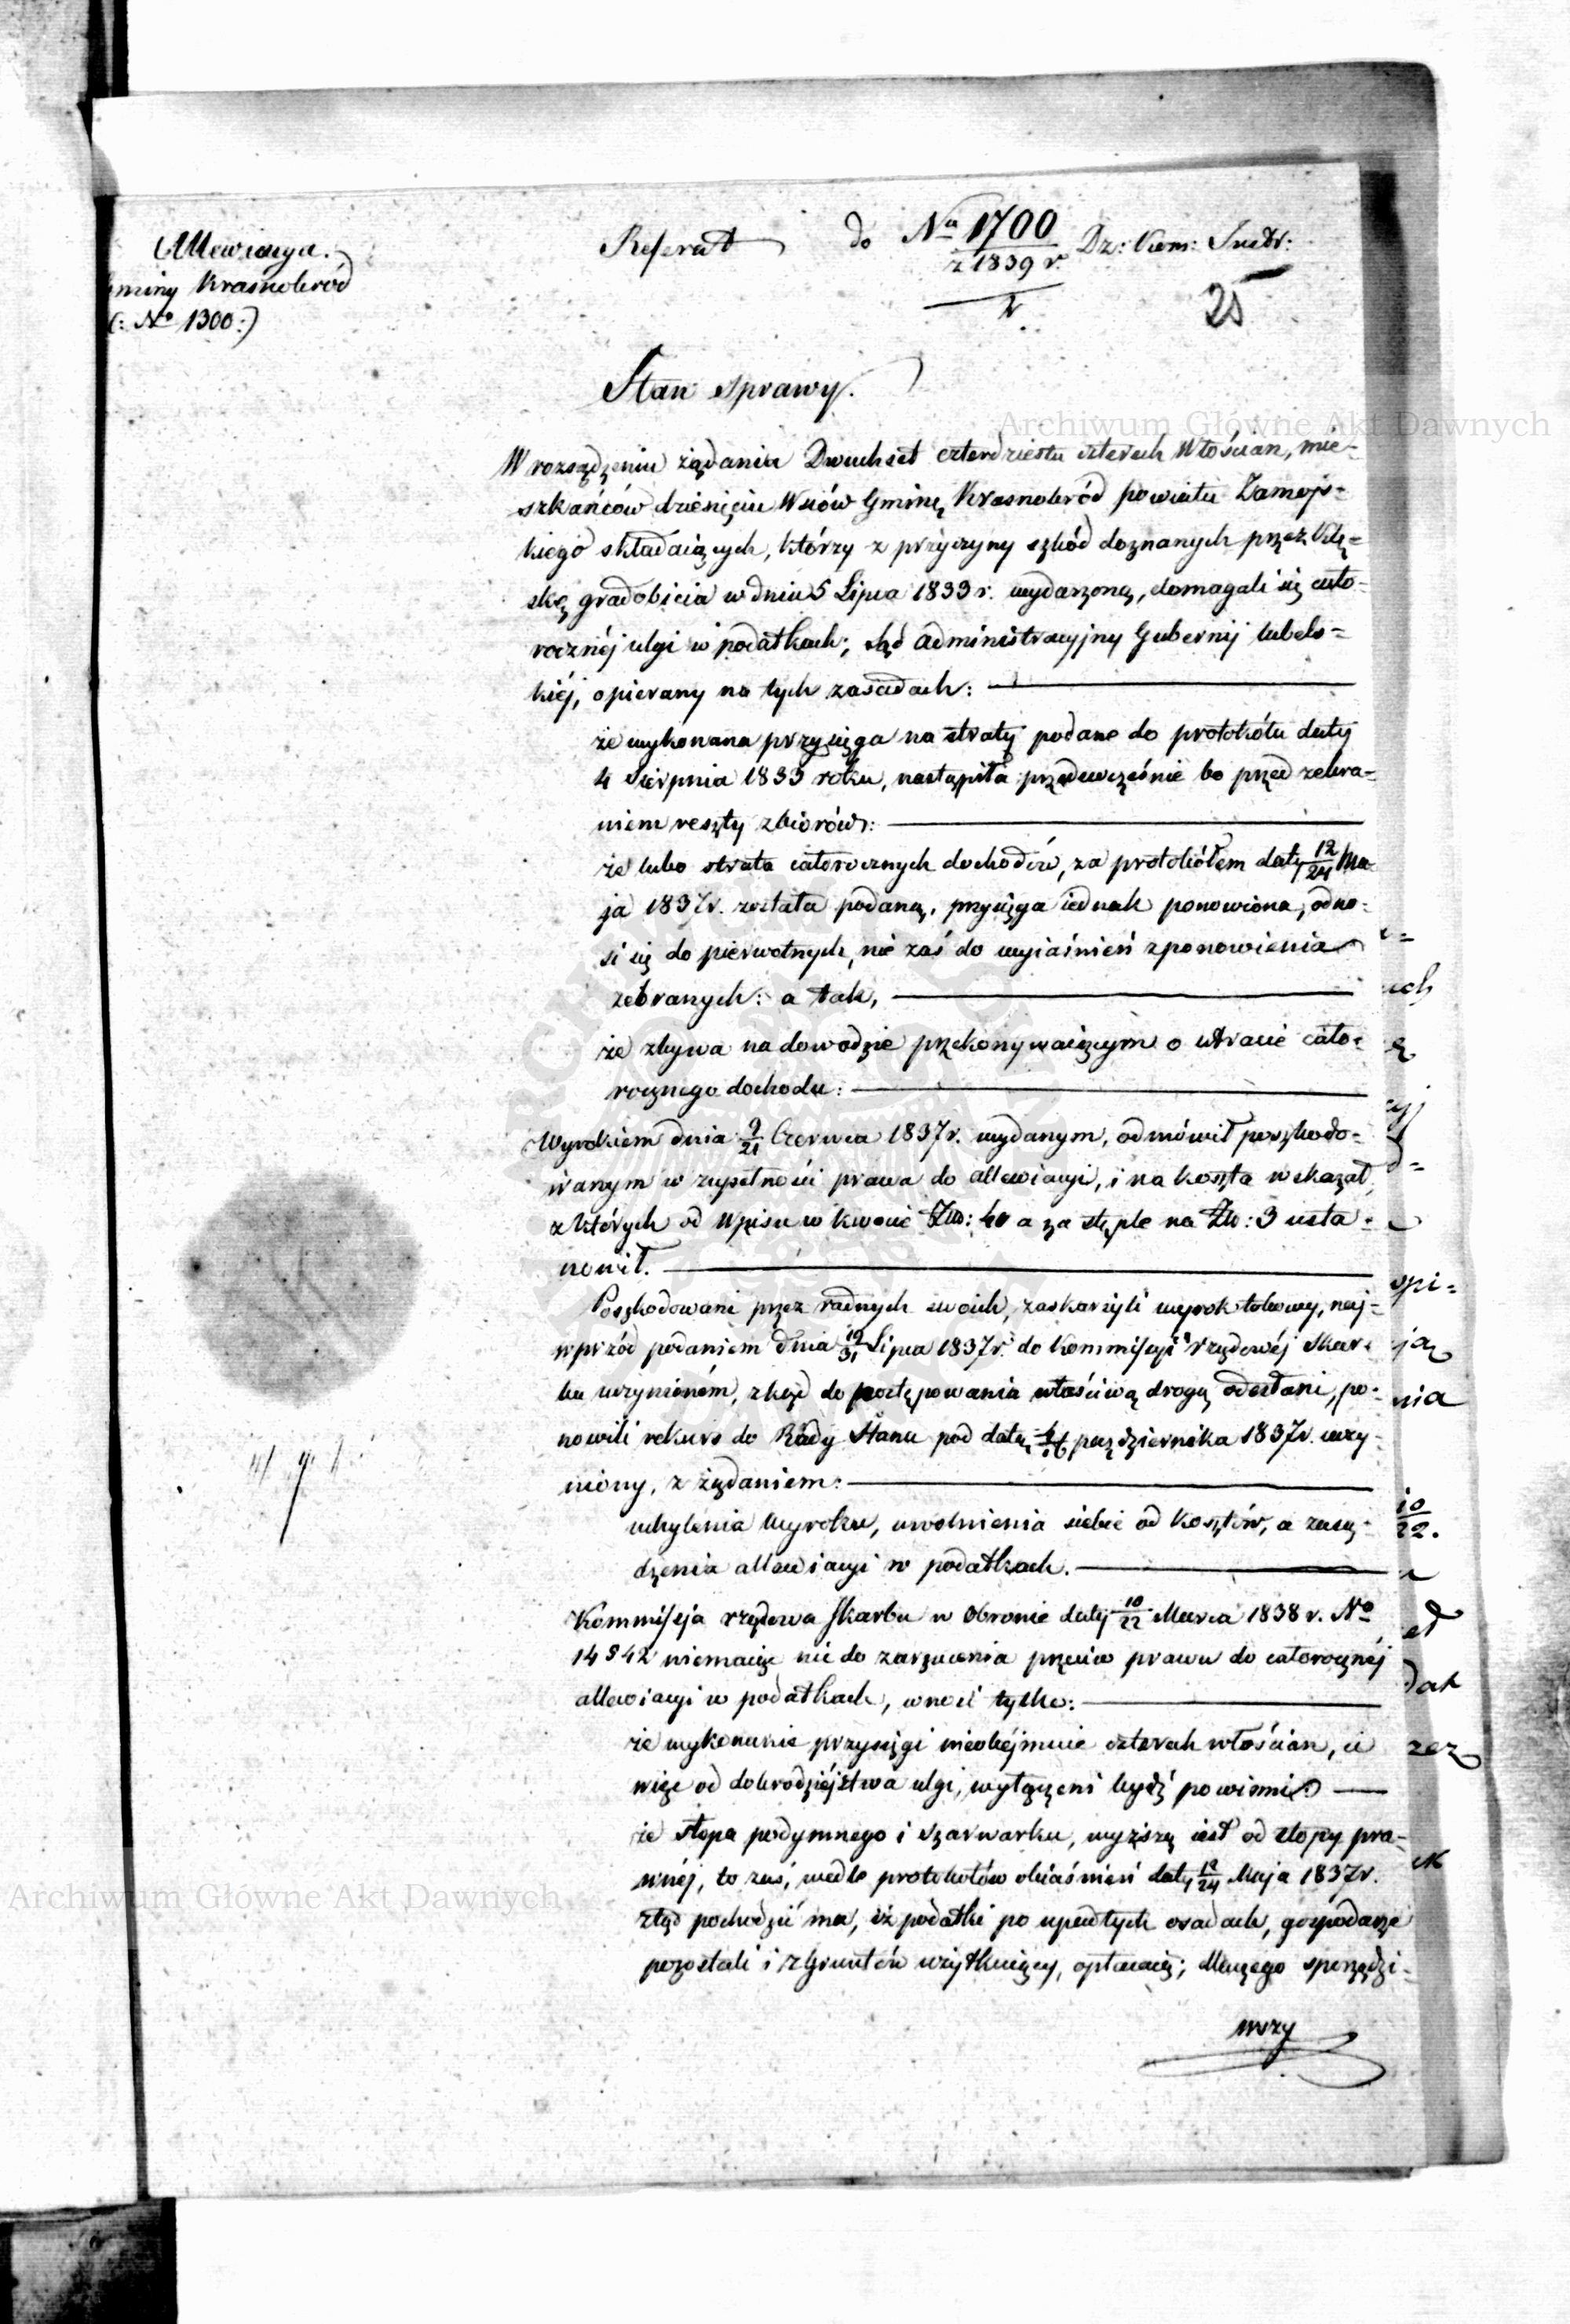 Allewiacya.
Gminy Krasnobród
(: No 1300:)
Referat do Na 1700 Dz: Kom: Instr:
z 1839 r.
25
Stan sprawy.
Archiwum Główne Akt Dawnych
W rozsądzeniu żądania Dwuchset czterdziestu czterech Włościan, mie-
szkańców dziesięciu Wsiów Gminę Krasnobród powiatu Zamojs-
kiego składaiących, którzy z przyczyny szkód doznanych przez klę-
skę gradobicia w dniu 5 Lipca 1833 r. wydarzoną, domagali się cało-
rocznéj ulgi w podatkach; Sąd Administracyjny Gubernij lubels-
kiéj, opierany na tych zasadach:
że wykonana przysięga na straty podane do protokółu daty
4 Sierpnia 1833 roku, nastąpiła przedwcześnie bo przed zebra-
niem reszty zbiorów:
że lubo strata całorocznych dochodów, za protokółem daty 12/24 Ma-
ja 1837 r. została podaną, przysięga iednak ponowiona, odno-
si się do pierwotnych, nie zaś do wyiaśnień z ponowienia
zebranych: a tak,
że zbywa na dowodzie przekonywaiącym o utracie cało-
rocznego dochodu:
Wyrokiem dnia 9/21 Czerwca 1837 r. wydanym, odmówił poszkodo-
wanym w zupełności prawa do allewiacyi, i na koszta wskazał,
z których od Wpisu w kwocie Złp: 40 a za stęple na Złp: 3 usta-
nowił.
Poszkodowani przez radnych swoich, zaskarżyli wyrok takowy, naj-
wprzód podaniem dnia 19/31 Lipca 1837 r. do Kommissyi rządowéj Skar-
bu uczynioném, zkąd do postępowania właściwą drogą odesłani, po-
nowili rekurs do Rady Stanu pod datą października 1837 r. uczy-
niony, z żądaniem:
uchylenia Wyroku, uwolnienia siebie od kosztów, a zasą-
dzenia allewiacyi w podatkach.
Kommissya rządowa Skarbu w Obronie daty 10/22 Marca 1838 r. No
14842 niemaiąc nic do zarzucenia przeciw prawu do całorocznéj
allewiacyi w podatkach, wnosi tylko:
że wykonanie przysięgi nieobéjmuie czterech włościan, ci
więc od dobrodziéjstwa ulgi, wyłączeni bydź powinni
że stopa podymnego i szarwarku, wyższą iest od stopy pra-
wnéj, to zaś, wedle protokołów obiaśnień daty 12/24 Maja 1837 r.
ztąd pochodzić ma, iż podatki po upadłych osadach, gospodarze
pozostali i z gruntów użytkuiący, opłacaią; dlaczego sporządzi-
wszy
Archiwum Główne Akt Dawnych